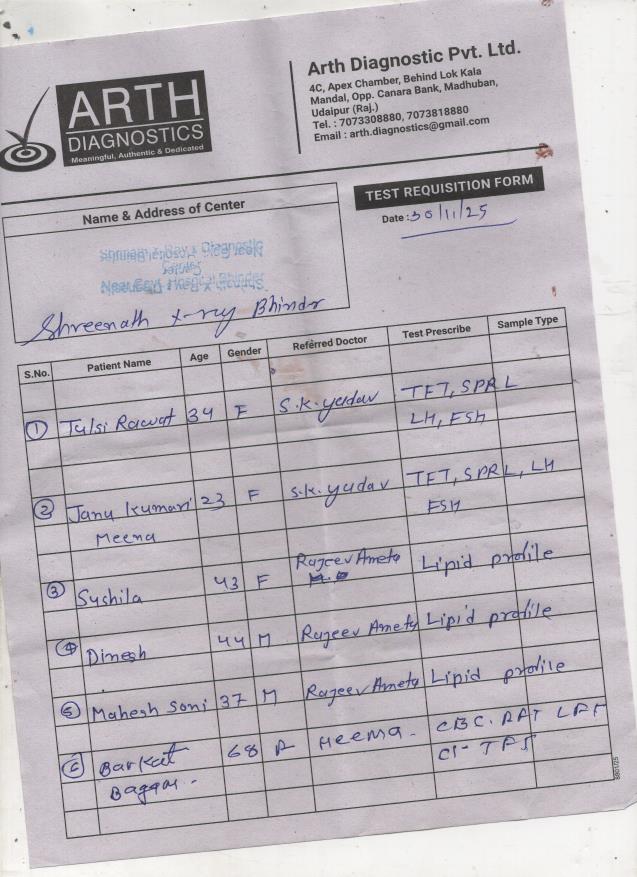 ARTH
DIAGNOSTICS
Meaningful, Authentic & Dedicated
Arth Diagnostic Pvt. Ltd.
4C, Apex Chamber, Behind Lok Kala
Mandal, Opp. Canara Bank, Madhuban,
Udaipur (Raj.)
Tel. : 7073308880, 7073818880
Email : arth.diagnostics@gmail.com
TEST REQUISITION FORM
Date : 30/11/25
Name & Address of Center
Shreenath X-ray Bhindr
S.No. Patient Name Age Gender Referred Doctor Test Prescribe Sample Type
1 Tulsi Rawat 34 F S.K. yadav TFT, SPRL
LH, FSH
2 Janu Kumari 23 F S.K. yadav TFT, SPRL, LH
Meena FSH
3 Sushila 43 F Rajeev Ameta Lipid profile
4 Dinesh 44 M Rajeev Ameta Lipid profile
5 Mahesh Soni 37 M Rajeev Ameta Lipid profile
6 Barkat 68 Heema - CBC.